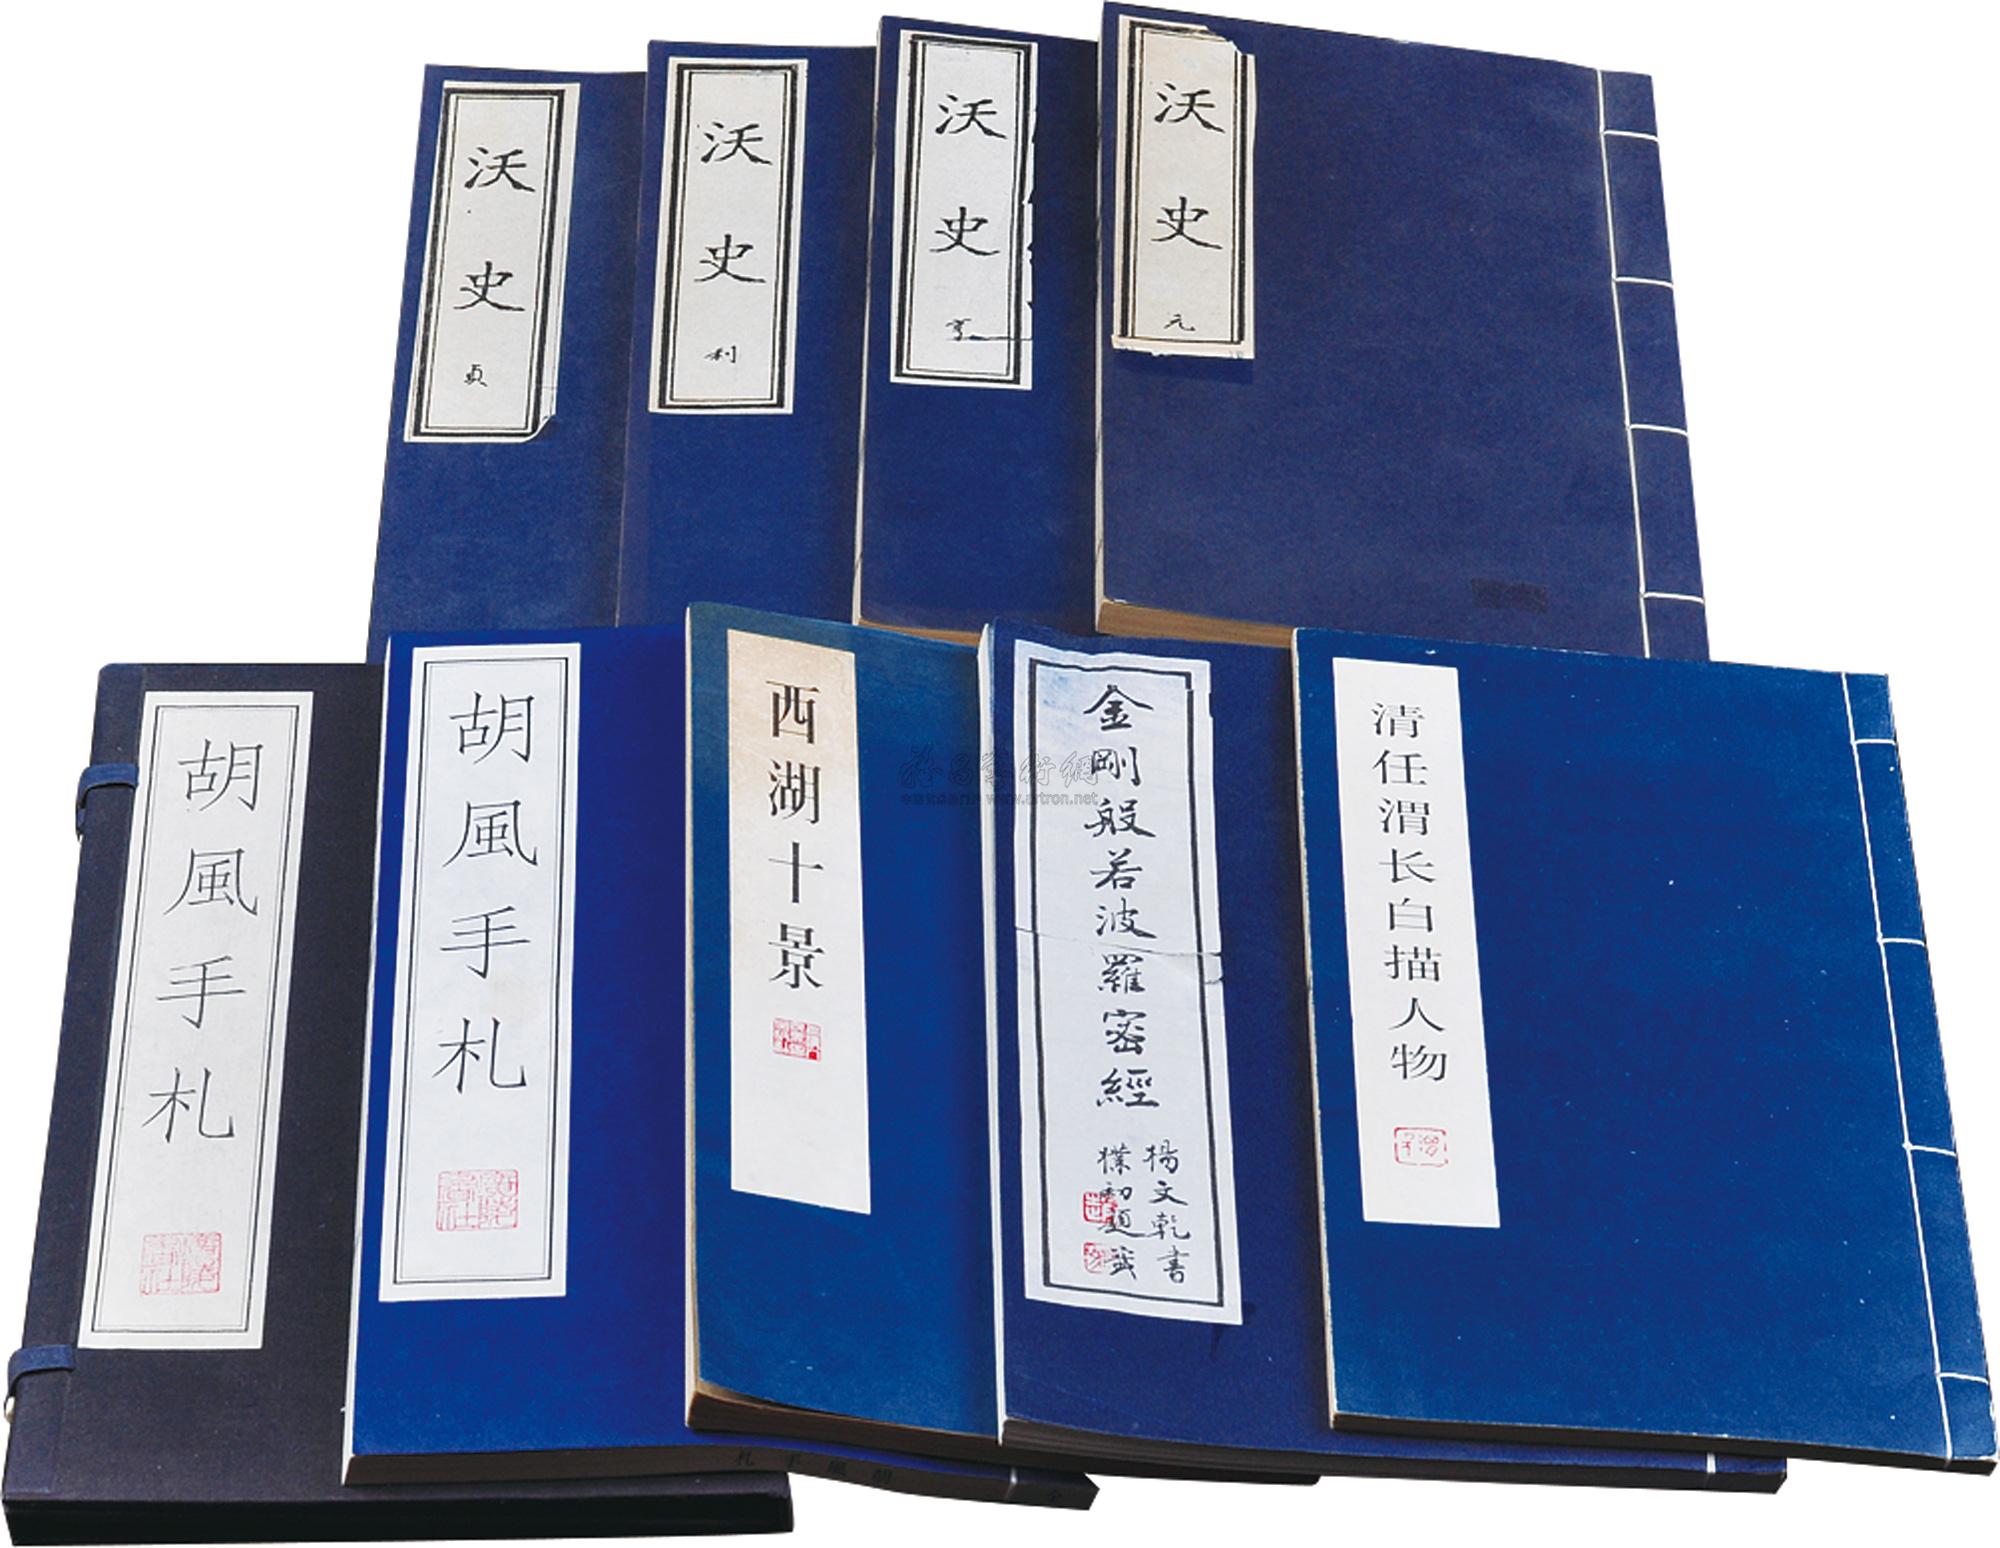 沃史
貞
沃史
利
沃史
亨
沃史
元
胡風手札
胡風手札
西湖十景
金剛般若波羅密經
楊文乾書
樸初題籤
清任渭长白描人物
胡風手札
全
www.artron.net